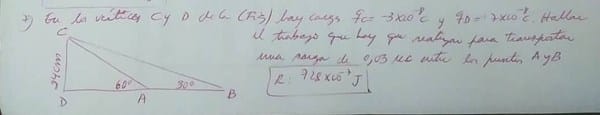 2) En los vértices C y D de la (Fig) hay carga qC = -3x10⁻⁸C y qD = -2x10⁻⁸C. Hallar
el trabajo que hay que realizar para transportar
una carga de 0,03 entre los puntos A y B
R: J
C
24cm
60° 30°
D A B